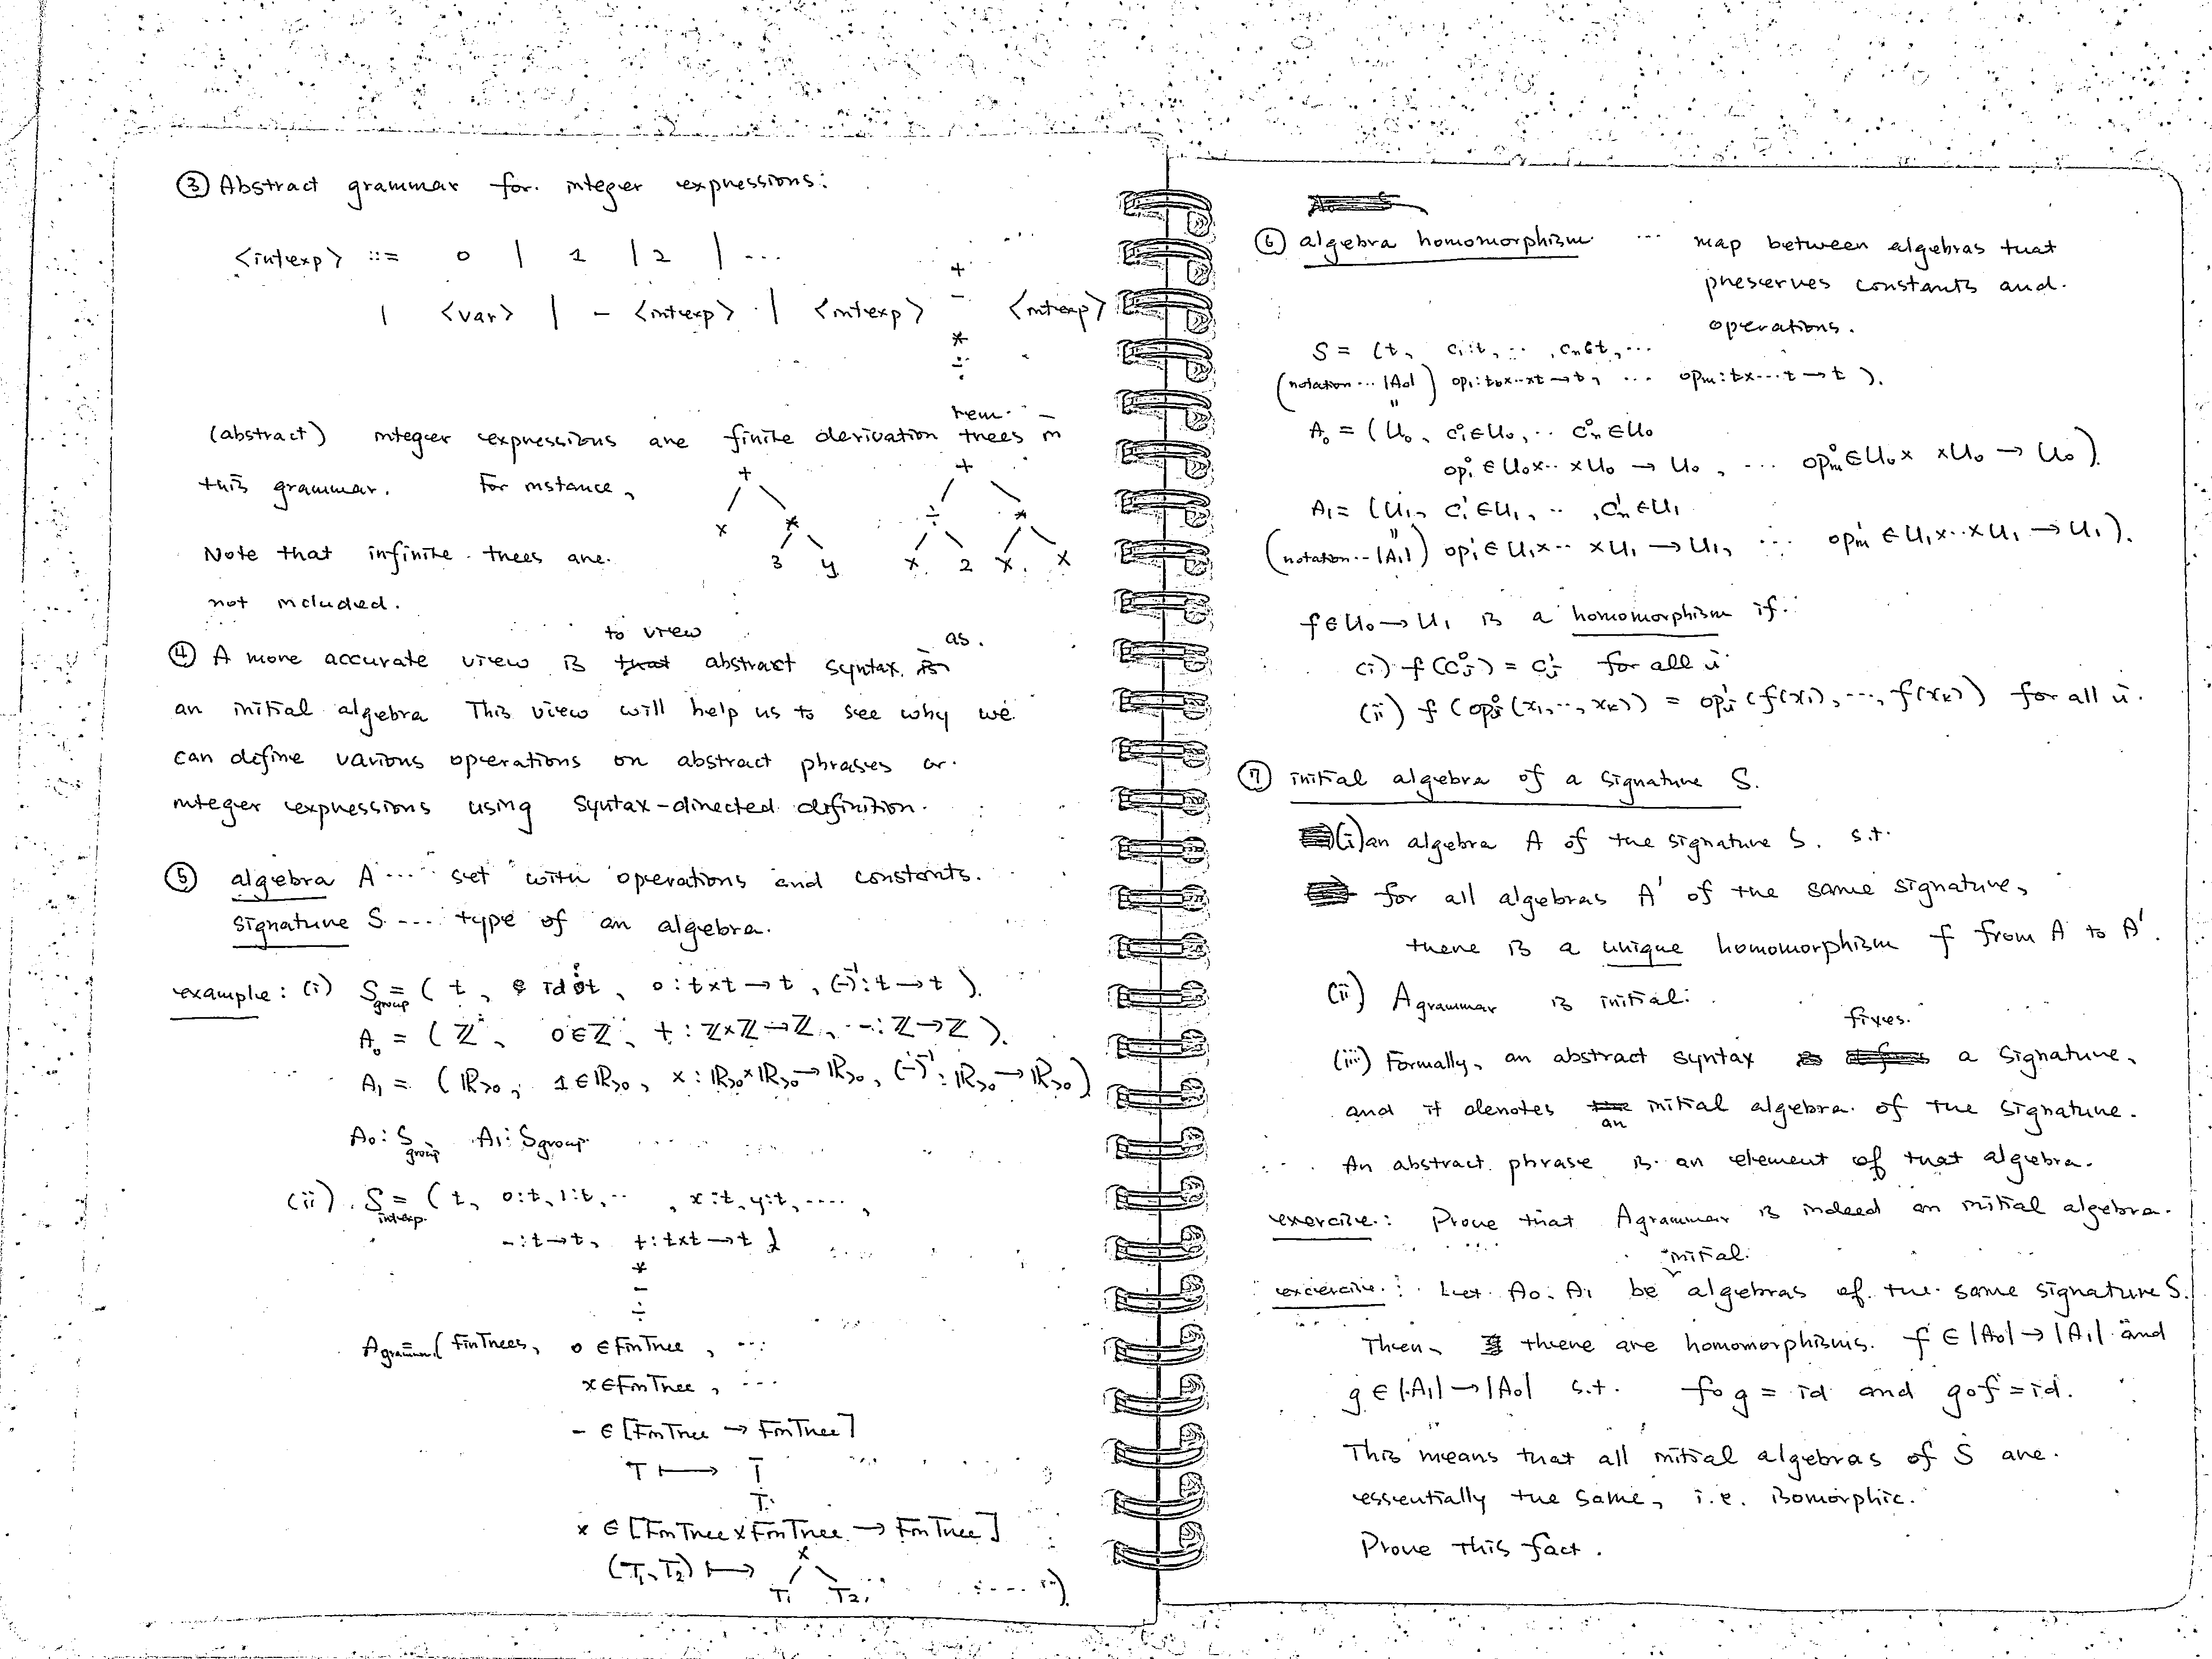 ③ Abstract grammar for integer expressions:
<intexp> ::= 0 | 1 | 2 | ...
| <var> | - <intexp> | <intexp> + <intexp>
-
*
÷
rem
(abstract) integer expressions are finite derivation trees in
this grammar. For instance,
+
x *
3 y
+
÷ *
x 2 x x
Note that infinite trees are
not included.
to view as
④ A more accurate view is that abstract syntax is
an initial algebra This view will help us to see why we
can define various operations on abstract phrases or
integer expressions using syntax-directed definition.
⑤ algebra A ... set with operations and constants.
signature S ... type of an algebra.
example: (i) S_group = ( t, id:t, o : t×t → t, (-)⁻¹ : t → t ).
A₀ = ( ℤ, 0∈ℤ, + : ℤ×ℤ→ℤ, - : ℤ→ℤ ).
A₁ = ( ℝ>0, 1∈ℝ>0, × : ℝ>0×ℝ>0→ℝ>0, (-)⁻¹ : ℝ>0→ℝ>0 )
A₀ : S_group A₁ : S_group
(ii) S_intexp = ( t, 0:t, 1:t, ... , x:t, y:t, ....,
- : t→t, + : t×t→t )
*
-
÷
A_grammar = ( FinTrees, 0 ∈ FinTree, ...
x ∈ FinTree, ...
- ∈ [FinTree → FinTree]
T ⟼ -
T
× ∈ [FinTree × FinTree → FinTree]
(T₁, T₂) ⟼ ×
T₁ T₂, ....)
⑥ algebra homomorphism ... map between algebras that
preserves constants and
operations.
S = (t, c₁:t, .. , cₙ∈t, ...
(notation ... |A₀|) op₁ : t×..×t → t, ... opₘ : t×...t → t ).
A₀ = ( U₀, c₁⁰∈U₀, .. cₙ⁰∈U₀
op₁⁰ ∈ U₀×..×U₀ → U₀, ... opₘ⁰ ∈ U₀× ×U₀ → U₀ ).
A₁ = ( U₁, c₁¹∈U₁, .. , cₙ¹∈U₁
(notation ... |A₁|) op₁¹ ∈ U₁×..×U₁ → U₁, ... opₘ¹ ∈ U₁×..×U₁ → U₁ ).
f ∈ U₀ → U₁ is a homomorphism if
(i) f(cᵢ⁰) = cᵢ¹ for all i
(ii) f(opᵢ⁰(x₁, .., xₖ)) = opᵢ¹(f(x₁), ..., f(xₖ)) for all i.
⑦ initial algebra of a signature S.
(i) an algebra A of the signature S. s.t.
for all algebras A' of the same signature,
there is a unique homomorphism f from A to A'.
(ii) A_grammar is initial.
fixes
(iii) Formally, an abstract syntax a signature,
and it denotes the an initial algebra of the signature.
An abstract phrase is an element of that algebra.
exercise: Prove that A_grammar is indeed an initial algebra.
initial
excercise: Let A₀, A₁ be algebras of the same signature S.
Then, there are homomorphisms f ∈ |A₀| → |A₁| and
g ∈ |A₁| → |A₀| s.t. f∘g = id and g∘f = id.
This means that all initial algebras of S are
essentially the same, i.e. isomorphic.
Prove this fact.